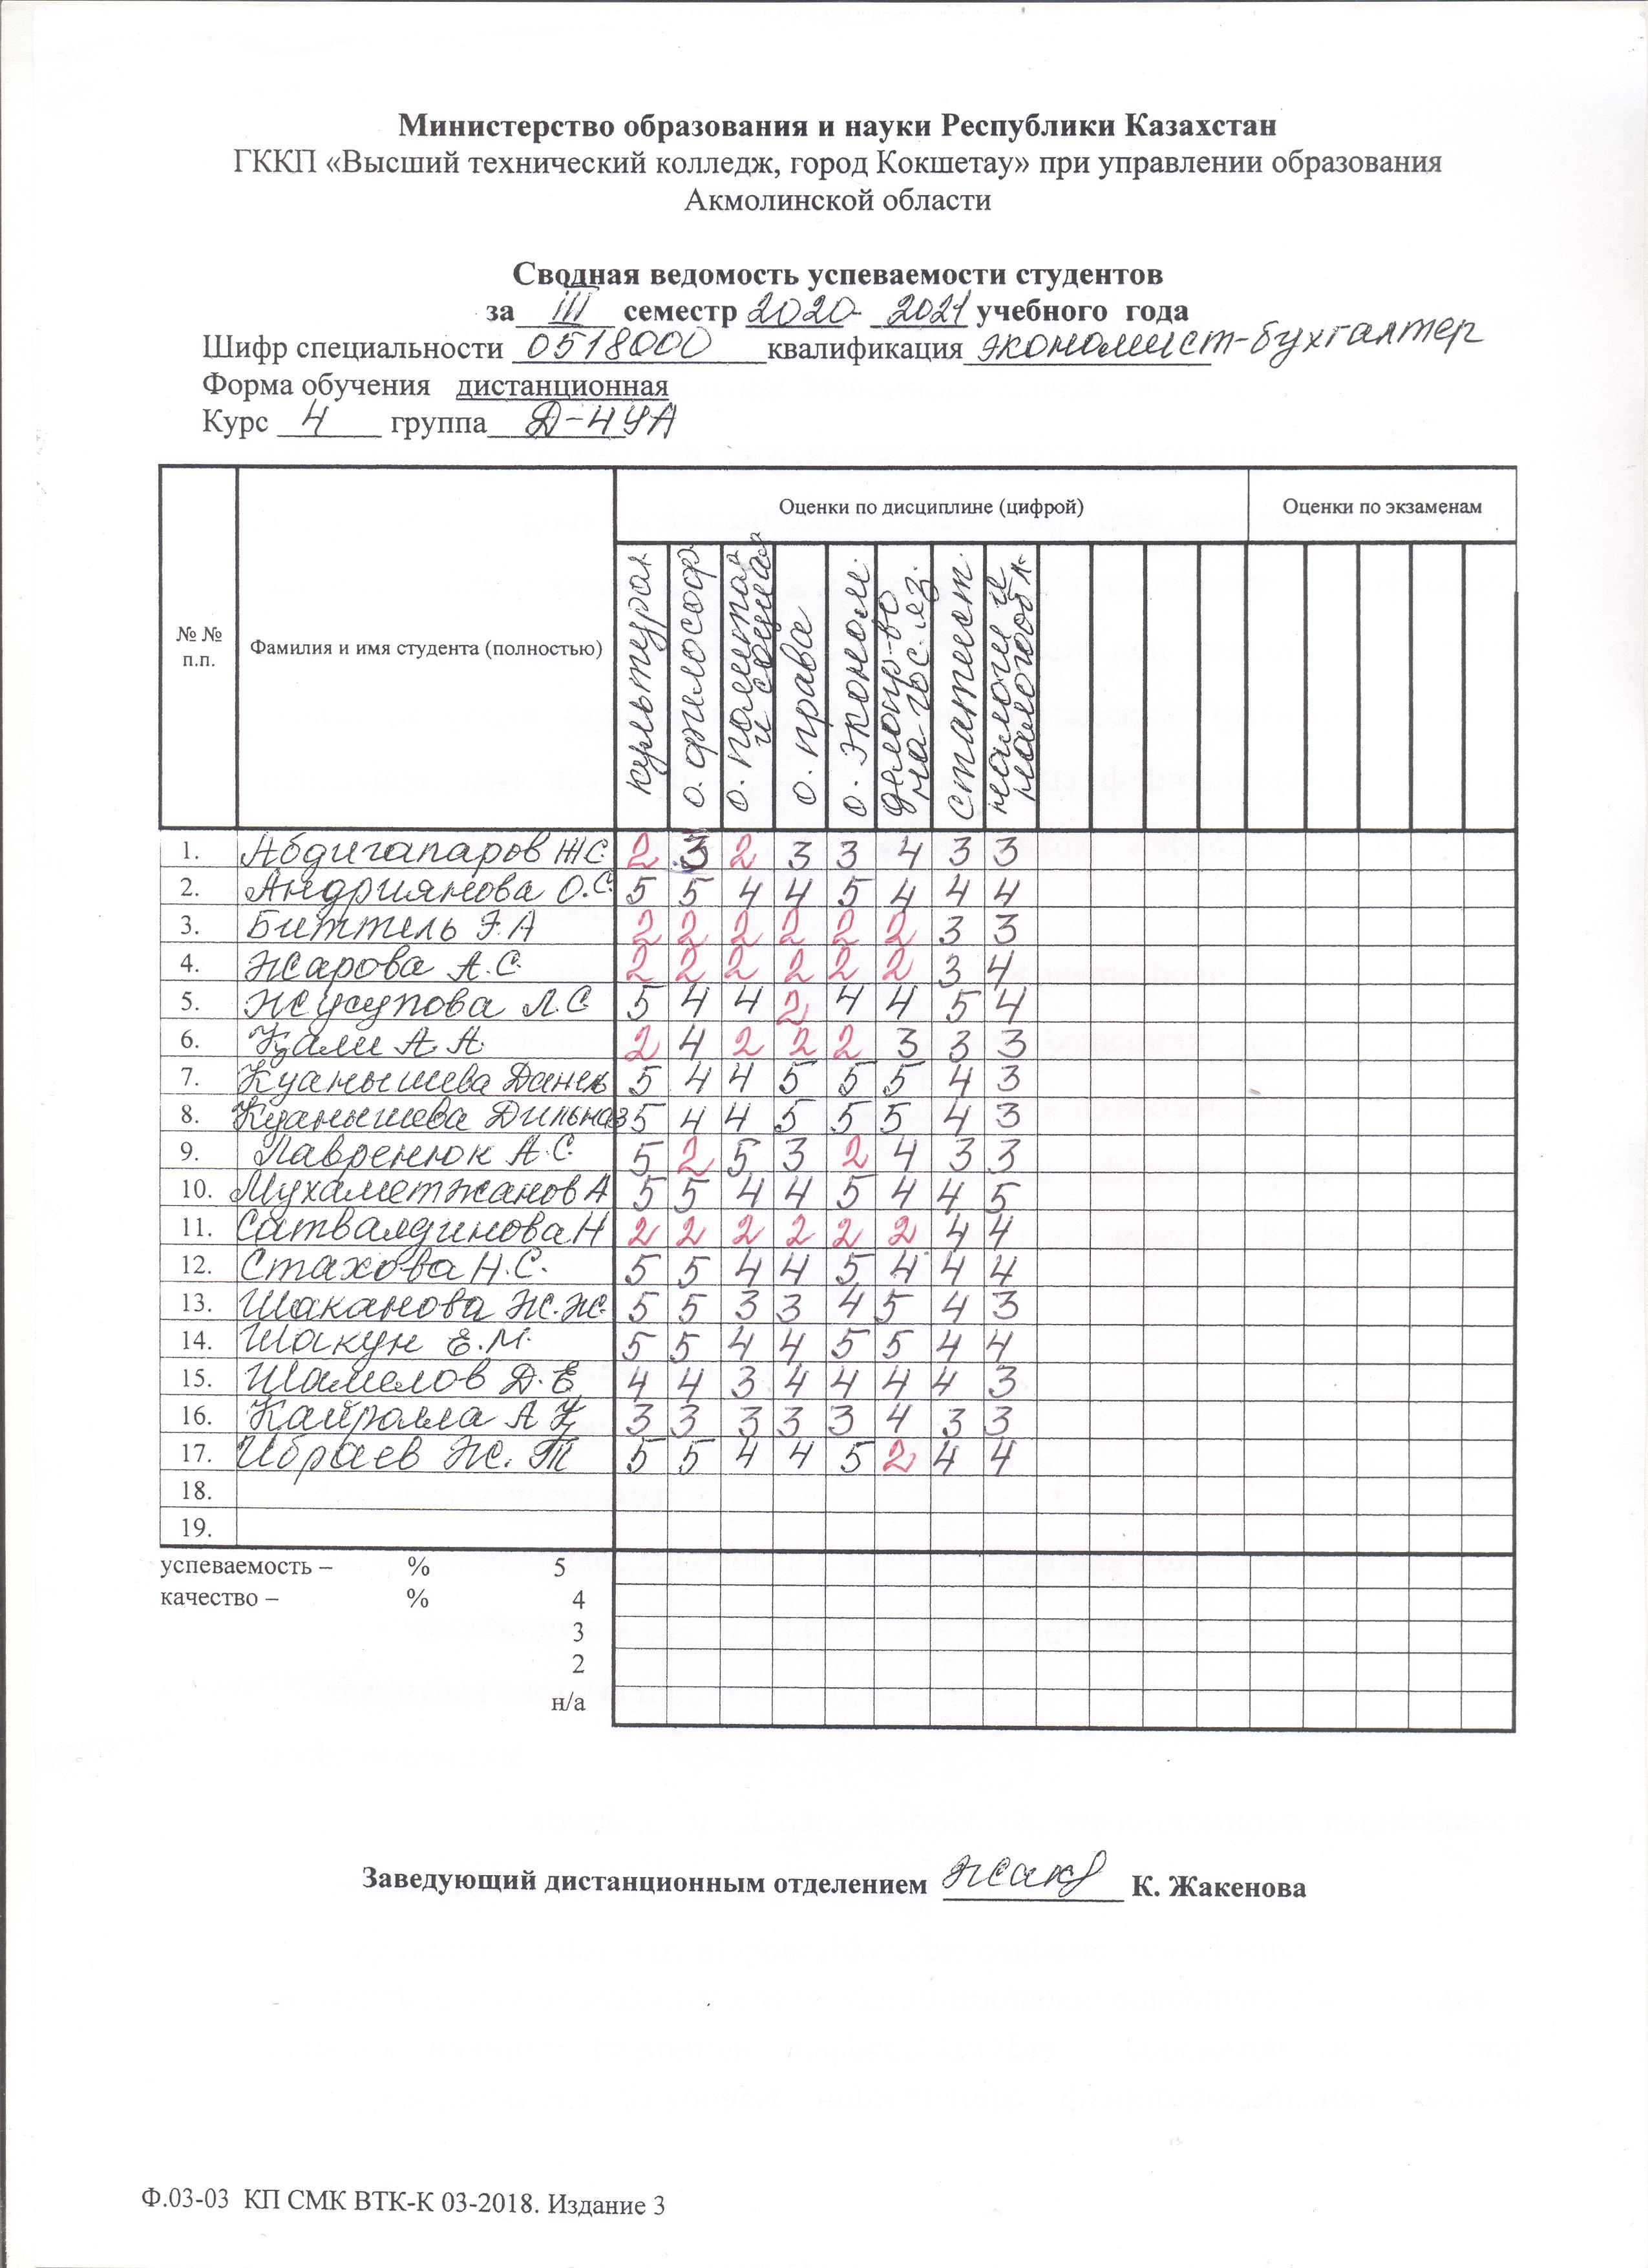 Министерство образования и науки Республики Казахстан
ГККП «Высший технический колледж, город Кокшетау» при управлении образования
Акмолинской области
Сводная ведомость успеваемости студентов
за III семестр 2020- 2021 учебного года
Шифр специальности 0518000 квалификация экономист-бухгалтер
Форма обучения дистанционная
Курс 4 группа Д-4УА
№ № п.п.
Фамилия и имя студента (полностью)
Оценки по дисциплине (цифрой)
Оценки по экзаменам
культурол
о. философ
о. политол и социол
о. права
о. эконом.
делопр-во на гос. яз.
статист.
налоги и налогообл.
1. Абдигапаров Ж С 2 3 2 3 3 4 3 3
2. Андриянова О.С. 5 5 4 4 5 4 4 4
3. Биттель Э.А 2 2 2 2 2 2 3 3
4. Жарова А.С. 2 2 2 2 2 2 3 4
5. Жусупова Л.С 5 4 4 2 4 4 5 4
6. Қали А.А. 2 4 2 2 2 3 3 3
7. Куанышева Данель 5 4 4 5 5 5 4 3
8. Куанышева Дильназ 5 4 4 5 5 5 4 3
9. Лавренюк А.С. 5 2 5 3 2 4 3 3
10. Мухаметжанов А 5 5 4 4 5 4 4 5
11. Сатвалдинова Н 2 2 2 2 2 2 4 4
12. Стахова Н.С. 5 5 4 4 5 4 4 4
13. Шаканова Ж.Ж. 5 5 3 3 4 5 4 3
14. Шакун Е.М. 5 5 4 4 5 5 4 4
15. Шамелов Д.Е. 4 4 3 4 4 4 4 3
16. Кайролла А Қ 3 3 3 3 3 4 3 3
17. Ибраев Ж. Т 5 5 4 4 5 2 4 4
18.
19.
успеваемость – % 5
качество – % 4
3
2
н/а
Заведующий дистанционным отделением К. Жакенова
Ф.03-03 КП СМК ВТК-К 03-2018. Издание 3